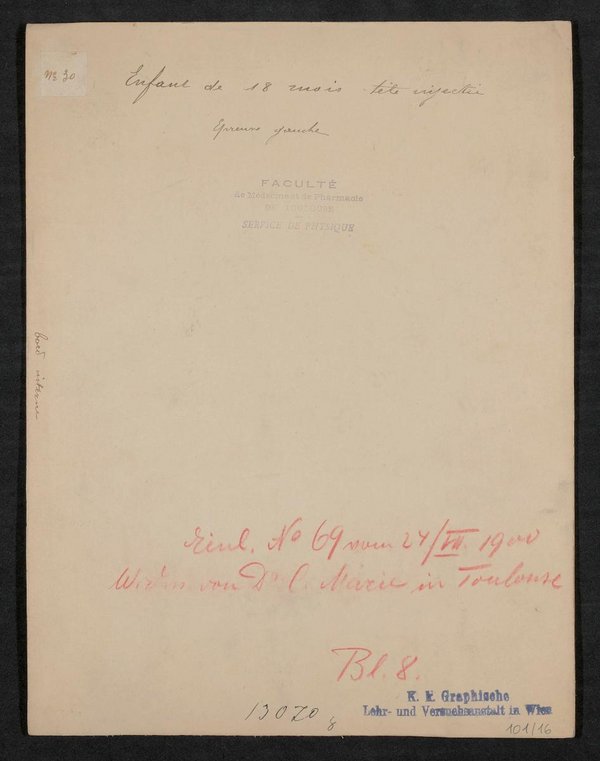 No 30
Enfant de 18 mois tête injectée
Epreuve gauche
FACULTÉ
de Médecine et de Pharmacie
DE TOULOUSE
SERVICE DE PHYSIQUE
bord interne
Einl. No 69 vom 24/VII. 1900
von Dr C. Marie in Toulouse
Bl. 8.
K. k. Graphische
Lehr- und Versuchsanstalt in Wien
13070 8
101/16